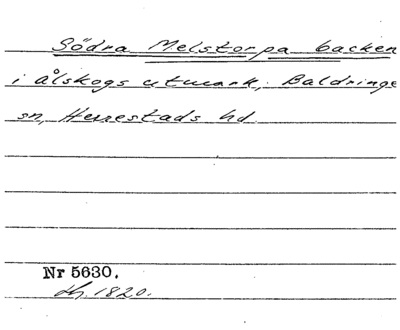 Södra Melstorpa backen
i Ålskogs utmark, Baldringe
sn, Herrestads hd.
Nr 5630.
1820.